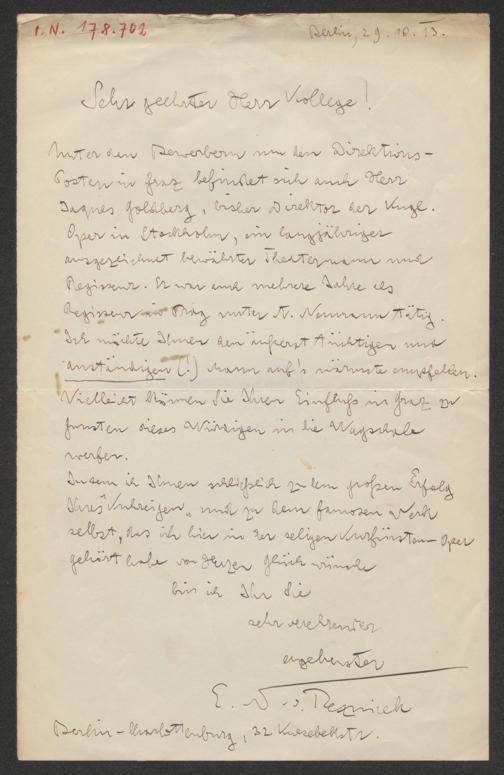 I.N. 178.702
Berlin, 29. 10. 13.
Sehr geehrter Herr Kollege!
Unter den Bewerbern um den Direktions-
Posten in Graz befindet sich auch Herr
Jaques Goldberg, bisher Direktor der Kngl.
Oper in Stockholm, ein langjähriger
ausgezeichnet bewährter Theatermann und
Regisseur. Er war auch mehrere Jahre als
Regisseur in Prag unter A. Neumann tätig.
Ich möchte Ihnen den äußerst tüchtigen und
anständigen (!) Mann auf's wärmste empfehlen.
Vielleicht können Sie Ihren Einfluß in Graz zu
gunsten dieses Würdigen in die Wagschale
werfen.
Indem ich Ihnen schließlich zu dem großen Erfolg
Ihres "Kuhreigen" und zu dem famosen Werk
selbst, das ich hier in der seligen Kurfürsten-Oper
gehört habe von Herzen Glück wünsche
bin ich Ihr Sie
sehr verehrender
ergebenster
E. N. v. Reznicek
Berlin-Charlottenburg, 32 Knesebeckstr.